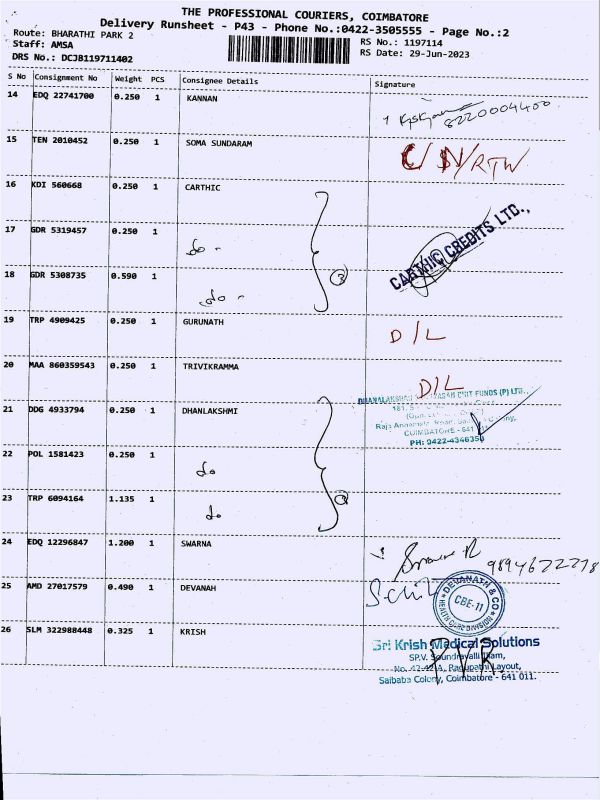 THE PROFESSIONAL COURIERS, COIMBATORE
Delivery Runsheet - P43 - Phone No.:0422-3505555 - Page No.:2
Route: BHARATHI PARK 2
RS No.: 1197114
Staff: AMSA
RS Date: 29-Jun-2023
DRS No.: DCJB119711402
S No Consignment No Weight PCS Consignee Details Signature
14 EDQ 22741700 0.250 1 KANNAN
8220004400
15 TEN 2010452 0.250 1 SOMA SUNDARAM
C/N/RTW
16 KDI 560668 0.250 1 CARTHIC
17 GDR 5319457 0.250 1 do -
CARTHIC CREDITS LTD.,
18 GDR 5308735 0.590 1 do - 3
19 TRP 4909425 0.250 1 GURUNATH D/L
20 MAA 860359543 0.250 1 TRIVIKRAMMA D/L
CHIT FUNDS (P) LTD.,
21 DDG 4933794 0.250 1 DHANLAKSHMI
COIMBATORE - 641
PH: 0422-4346350
22 POL 1581423 0.250 1 do
23 TRP 6094164 1.135 1 do
24 EDQ 12296847 1.200 1 SWARNA
9894672278
25 AMD 27017579 0.490 1 DEVANAH
DEVANATH & CO
CBE-11
HEALTH CARE DIVISION
26 SLM 322988448 0.325 1 KRISH
Sri Krish Medical Solutions
P.V.R.
SP.V. Soundravalli Illam,
No. 42-42 A, Ragupathi Layout,
Saibaba Colony, Coimbatore - 641 011.